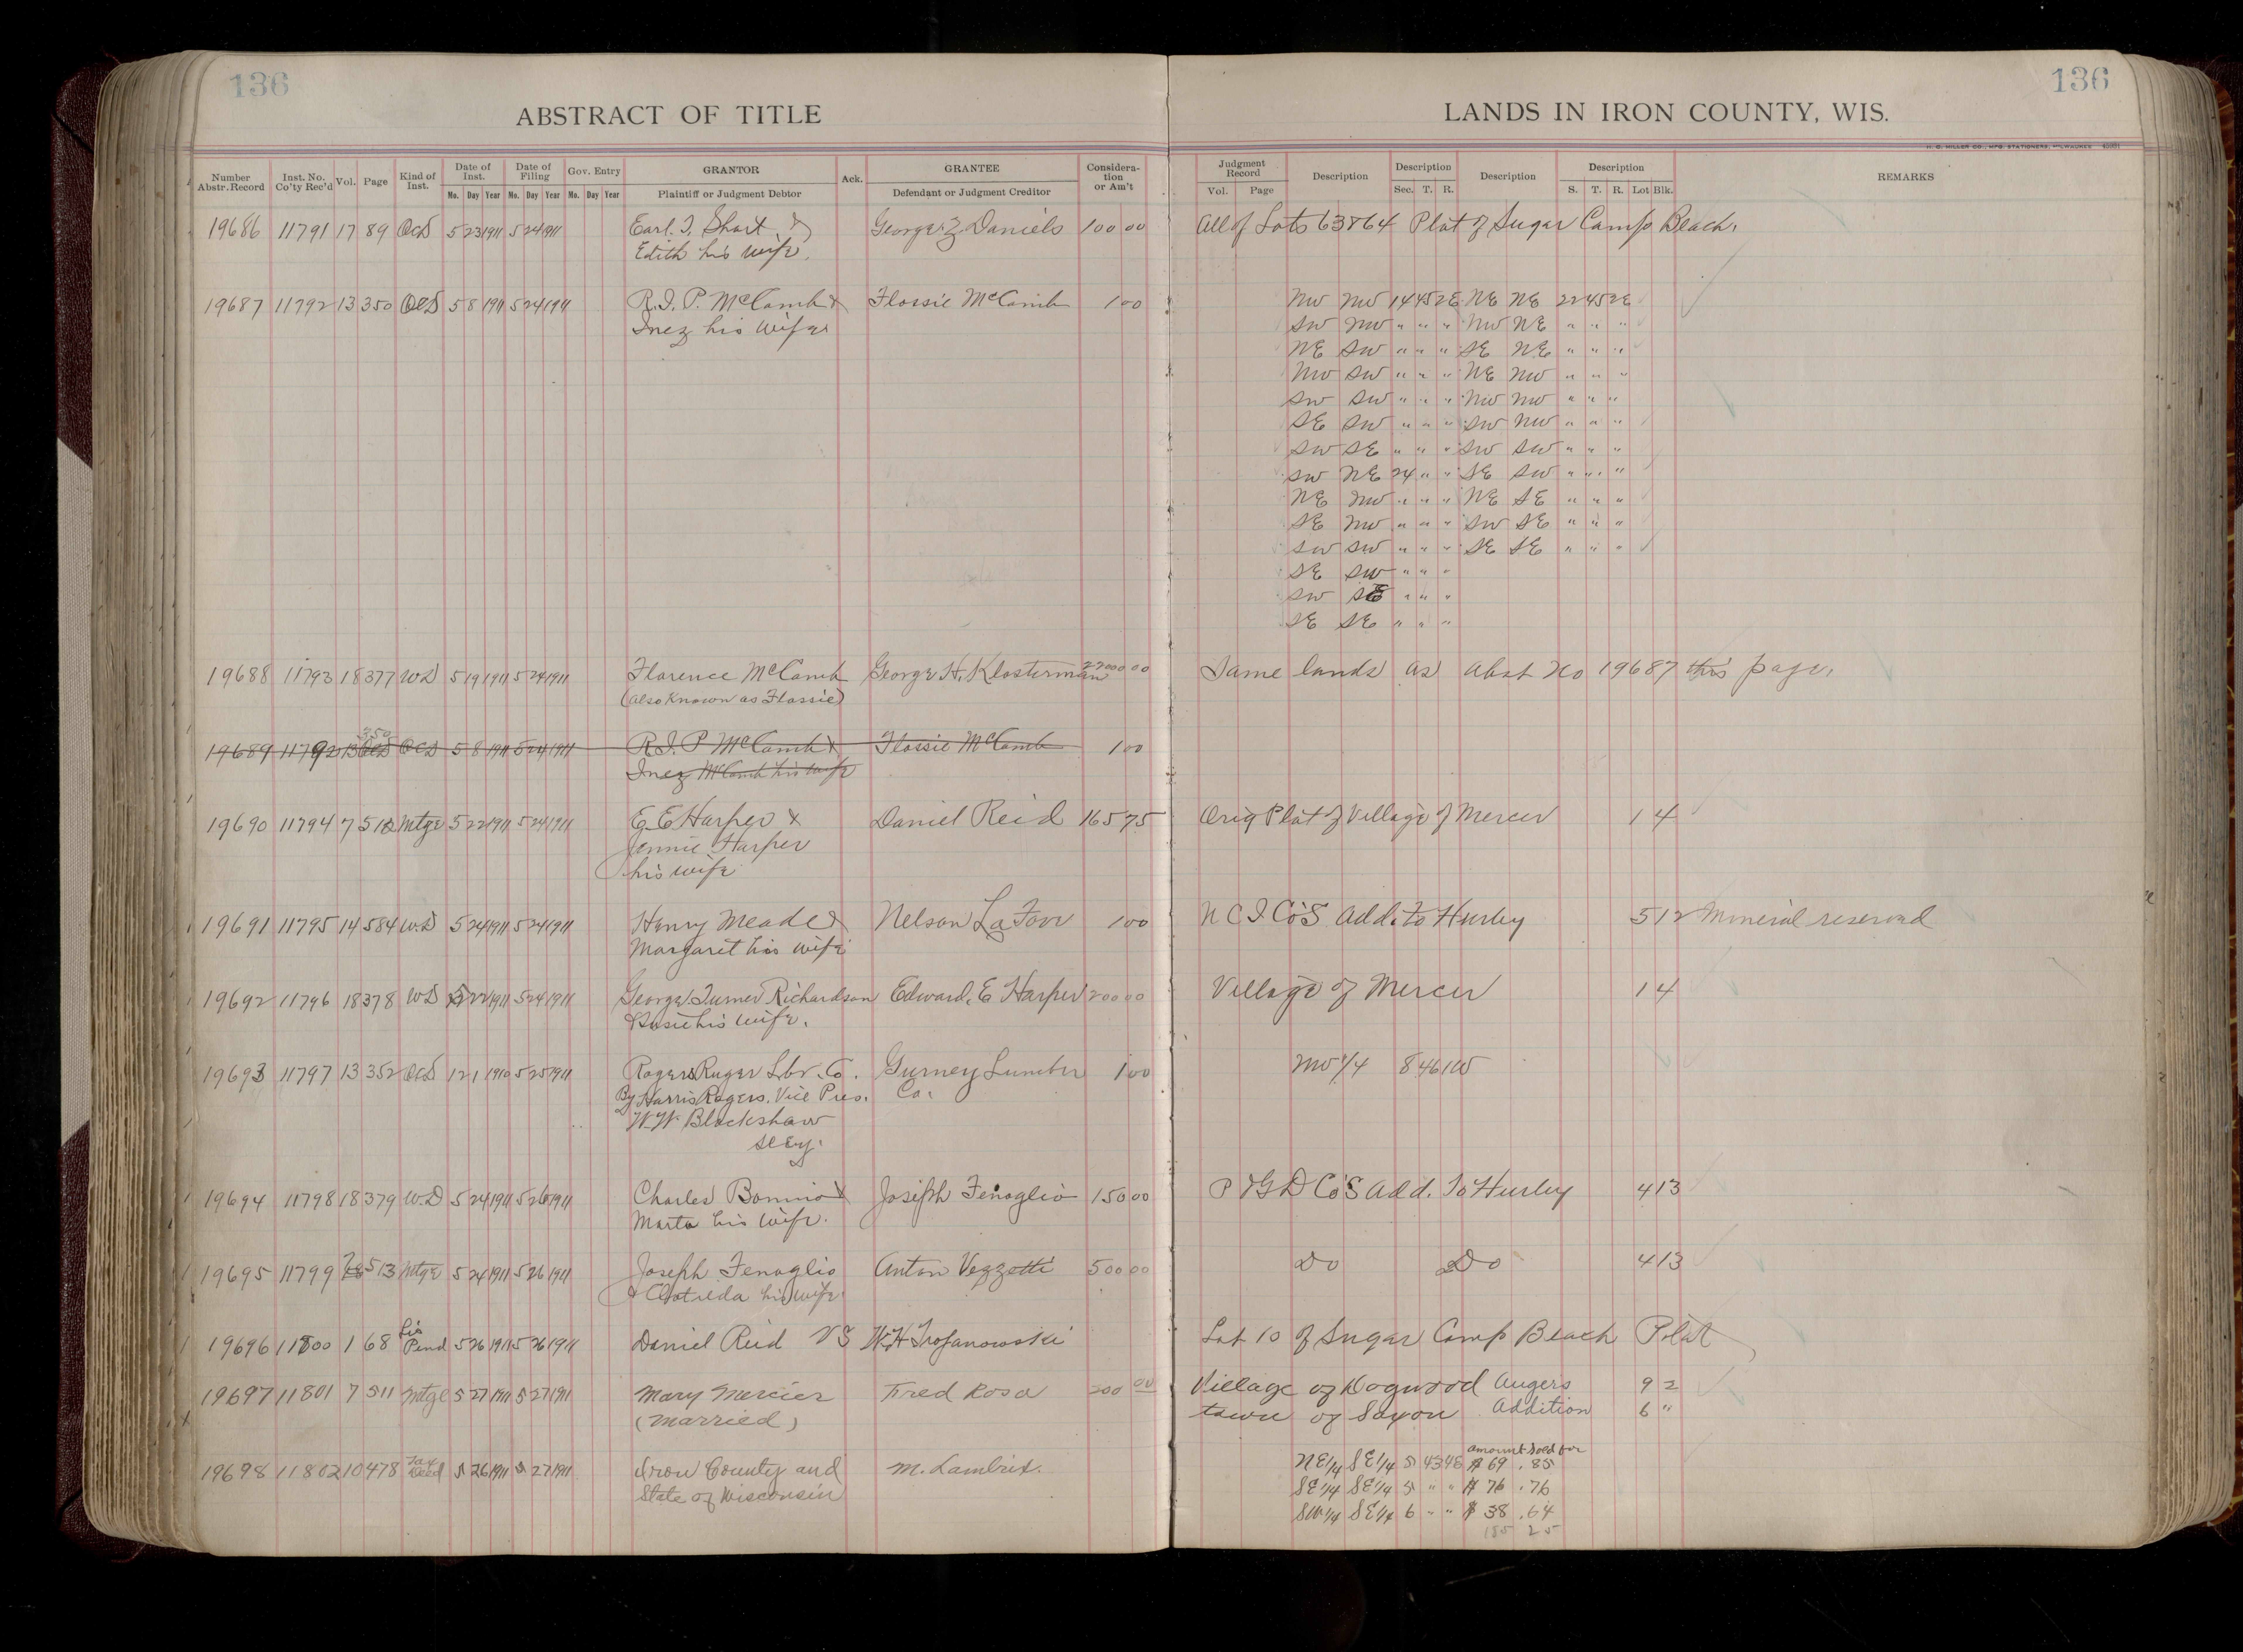 136
136
ABSTRACT OF TITLE
LANDS IN IRON COUNTY, WIS.
H. C. MILLER CO., MFG. STATIONERS, MILWAUKEE
Number Abstr. Record | Inst. No. Co'ty Rec'd | Vol. | Page | Kind of Inst. | Date of Inst. Mo. Day Year | Date of Filing Mo. Day Year | Gov. Entry Mo. Day Year | GRANTOR Plaintiff or Judgment Debtor | Ack. | GRANTEE Defendant or Judgment Creditor | Considera-tion or Am't
Judgment Record Vol. Page | Description | Description Sec. T. R. | Description | Description S. T. R. Lot Blk. | REMARKS
19686 11791 17 89 QCD 5 23 1911 5 24 1911 Earl. T. Short & George Z Daniels 100 00 All of Lots 63 & 64 Plat of Sugar Camp Beach.
Edith his wife.
19687 11792 13 350 QCD 5 8 1911 5 24 1911 R. I. P. McComb & Flossie McComb 1 00 NW NW 14 45 2E NE NE 22 45 2E
Inez his wife SW NW " " " NW NE " " "
NE SW " " " SE NE " " "
NW SW " " " NE NW " " "
SW SW " " " NW NW " " "
SE SW " " " SW NW " " "
SW SE " " " SW SW " " "
SW NE 24 " " SE SW " " "
NE NW " " " NE SE " " "
SE NW " " " SW SE " " "
SW SW " " " SE SE " " "
SE SW " " "
SW SE " " "
SE SE " " "
19688 11793 18 377 WD 5 19 1911 5 24 1911 Florence McComb George H. Klosterman 00 Same lands as Abst No 19687 this page.
(also known as Flossie)
350
19689 11792 13 QCD 5 8 1911 5 24 1911 R. I. P McComb & Flossie McComb 1 00
Inez McComb his wife
19690 11794 7 510 Mtge 5 22 1911 5 24 1911 E. E Harper & Daniel Reid 165 75 Orig Plat of Village of Mercer 1 4
Jennie Harper
his wife
19691 11795 14 584 W.D 5 24 1911 5 24 1911 Henry Meade & Nelson La Fore 1 00 N C I Co'S Add. to Hurley 5 12 Mineral reserved
Margaret his wife
19692 11796 18 378 WD 5 22 1911 5 24 1911 George Turner Richardson Edward. E Harper 200 00 Village of Mercer 1 4
& Susie his wife.
19693 11797 13 352 QCD 12 1 1910 5 25 1911 Rogers Ruger Lbr. Co. Gurney Lumber 1 00 NW 1/4 8 46 1W
By Harris Rogers. Vice Pres. Co.
W. W. Blackshaw
Secy.
19694 11798 18 379 W.D 5 24 1911 5 26 1911 Charles Bonino & Joseph Fenoglio 150 00 P & G D Co'S Add. To Hurley 4 13
Marta his wife.
19695 11799 7 513 Mtge 5 24 1911 5 26 1911 Joseph Fenoglio Anton Vezzetti 500 00 Do Do 4 13
& Clotilda his wife
19696 11800 1 68 Lis Pend 5 26 1911 5 26 1911 Daniel Reid VS W. H Trojanowski Lot 10 of Sugar Camp Beach Plat
19697 11801 7 511 Mtge 5 27 1911 5 27 1911 Mary Mercier Fred Rosa 200 00 Village of Dogwood Augers 9 2
(Married) town of Saxon Addition 6 "
amount sold for
19698 11802 10 478 Tax Deed 5 26 1911 5 27 1911 Iron County and M. Lambrix. NE1/4 SE1/4 5 43 4E $ 69 .85
State of Wisconsin SE1/4 SE1/4 5 " " $ 76 .76
SW1/4 SE1/4 6 " " $ 38 .64
185 25